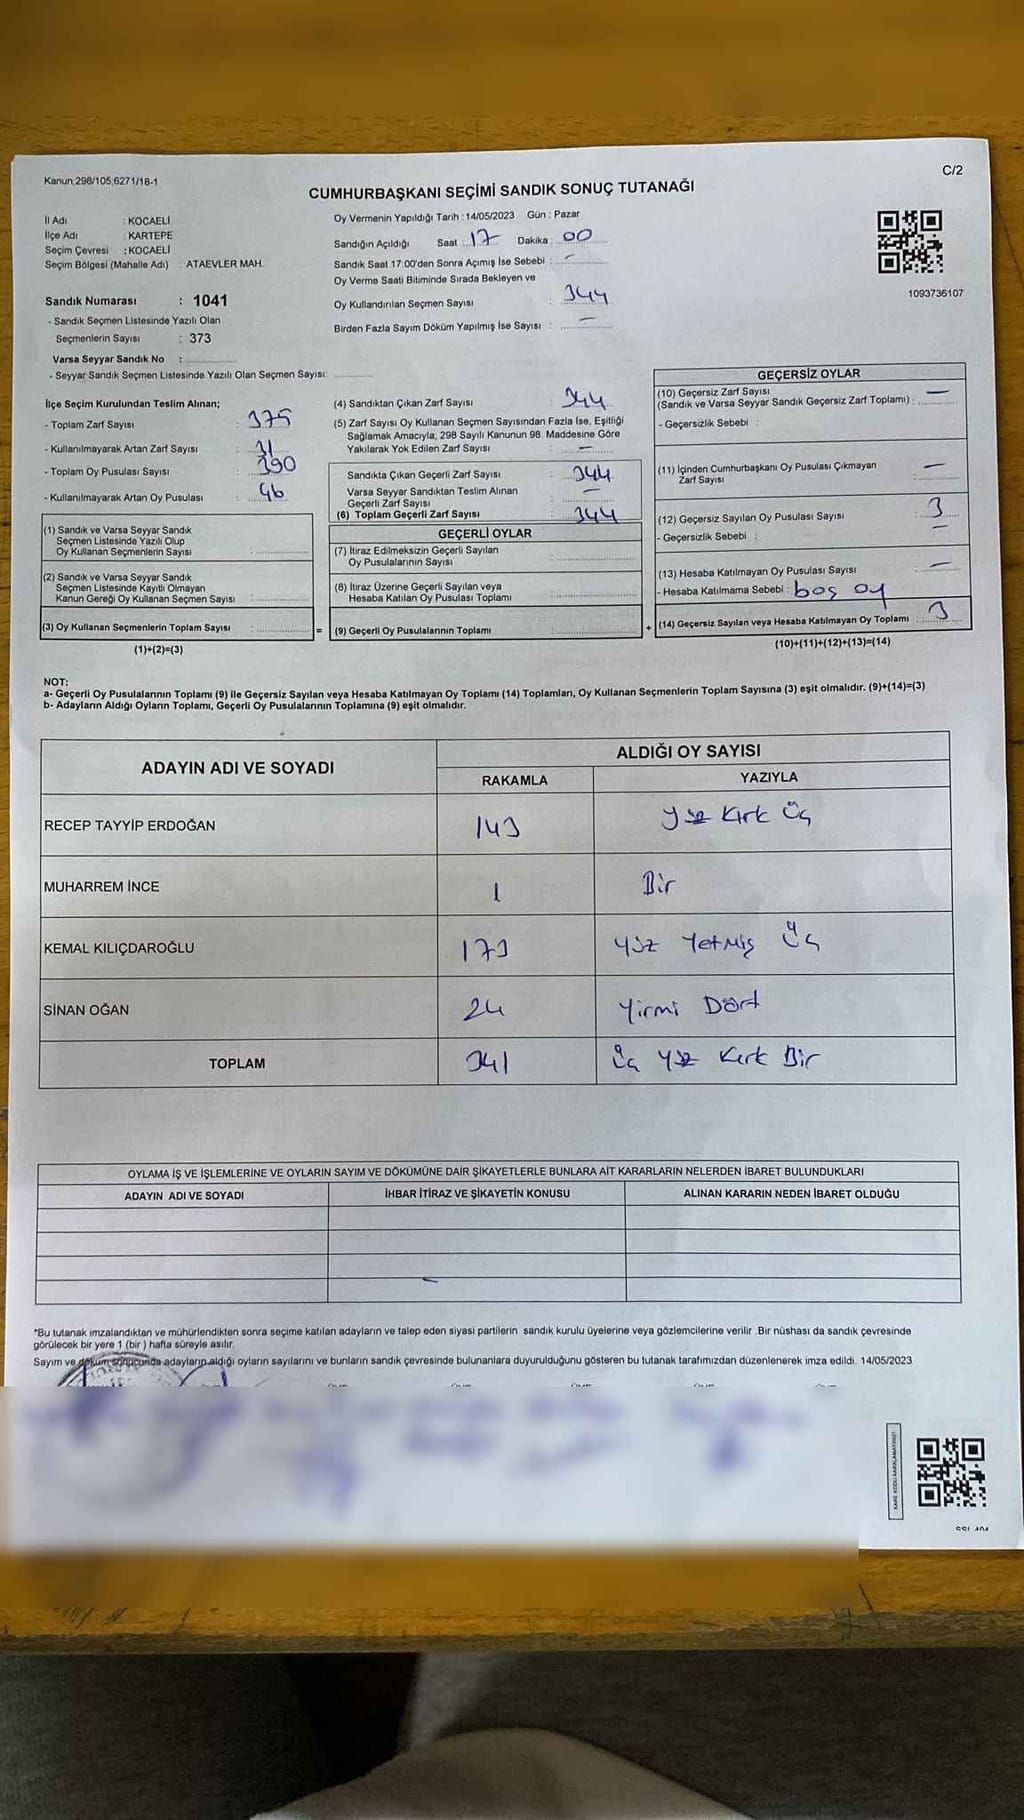 Kanun;298/105;6271/18-1
C/2
CUMHURBAŞKANI SEÇİMİ SANDIK SONUÇ TUTANAĞI
İl Adı : KOCAELİ
İlçe Adı : KARTEPE
Seçim Çevresi : KOCAELİ
Seçim Bölgesi (Mahalle Adı) : ATAEVLER MAH.
Oy Vermenin Yapıldığı Tarih : 14/05/2023 Gün : Pazar
Sandığın Açıldığı Saat : 17 Dakika : 00
Sandık Saat 17:00'den Sonra Açımış İse Sebebi : -
Oy Verme Saati Bitiminde Sırada Bekleyen ve
Oy Kullandırılan Seçmen Sayısı : 344
Birden Fazla Sayım Döküm Yapılmış İse Sayısı : -
1093736107
Sandık Numarası : 1041
- Sandık Seçmen Listesinde Yazılı Olan
Seçmenlerin Sayısı : 373
Varsa Seyyar Sandık No :
- Seyyar Sandık Seçmen Listesinde Yazılı Olan Seçmen Sayısı:
İlçe Seçim Kurulundan Teslim Alınan;
- Toplam Zarf Sayısı : 375
- Kullanılmayarak Artan Zarf Sayısı : 31
- Toplam Oy Pusulası Sayısı : 390
- Kullanılmayarak Artan Oy Pusulası : 46
(1) Sandık ve Varsa Seyyar Sandık
Seçmen Listesinde Yazılı Olup
Oy Kullanan Seçmenlerin Sayısı :
(2) Sandık ve Varsa Seyyar Sandık
Seçmen Listesinde Kayıtlı Olmayan
Kanun Gereği Oy Kullanan Seçmen Sayısı :
(3) Oy Kullanan Seçmenlerin Toplam Sayısı :
(1)+(2)=(3)
(4) Sandıktan Çıkan Zarf Sayısı : 344
(5) Zarf Sayısı Oy Kullanan Seçmen Sayısından Fazla İse, Eşitliği
Sağlamak Amacıyla, 298 Sayılı Kanunun 98. Maddesine Göre
Yakılarak Yok Edilen Zarf Sayısı : -
Sandıkta Çıkan Geçerli Zarf Sayısı : 344
Varsa Seyyar Sandıktan Teslim Alınan
Geçerli Zarf Sayısı : -
(6) Toplam Geçerli Zarf Sayısı : 344
GEÇERLİ OYLAR
(7) İtiraz Edilmeksizin Geçerli Sayılan
Oy Pusulalarının Sayısı :
(8) İtiraz Üzerine Geçerli Sayılan veya
Hesaba Katılan Oy Pusulası Toplamı :
= (9) Geçerli Oy Pusulalarının Toplamı :
GEÇERSİZ OYLAR
(10) Geçersiz Zarf Sayısı
(Sandık ve Varsa Seyyar Sandık Geçersiz Zarf Toplamı) : -
- Geçersizlik Sebebi :
(11) İçinden Cumhurbaşkanı Oy Pusulası Çıkmayan
Zarf Sayısı : -
(12) Geçersiz Sayılan Oy Pusulası Sayısı : 3
- Geçersizlik Sebebi : -
(13) Hesaba Katılmayan Oy Pusulası Sayısı : -
- Hesaba Katılmama Sebebi : boş oy
+ (14) Geçersiz Sayılan veya Hesaba Katılmayan Oy Toplamı : 3
(10)+(11)+(12)+(13)=(14)
NOT:
a- Geçerli Oy Pusulalarının Toplamı (9) ile Geçersiz Sayılan veya Hesaba Katılmayan Oy Toplamı (14) Toplamları, Oy Kullanan Seçmenlerin Toplam Sayısına (3) eşit olmalıdır. (9)+(14)=(3)
b- Adayların Aldığı Oyların Toplamı, Geçerli Oy Pusulalarının Toplamına (9) eşit olmalıdır.
ADAYIN ADI VE SOYADI
ALDIĞI OY SAYISI
RAKAMLA YAZIYLA
RECEP TAYYİP ERDOĞAN 143 Yüz Kırk Üç
MUHARREM İNCE 1 Bir
KEMAL KILIÇDAROĞLU 173 Yüz Yetmiş Üç
SİNAN OĞAN 24 Yirmi Dört
TOPLAM 341 Üç Yüz Kırk Bir
OYLAMA İŞ VE İŞLEMLERİNE VE OYLARIN SAYIM VE DÖKÜMÜNE DAİR ŞİKAYETLERLE BUNLARA AİT KARARLARIN NELERDEN İBARET BULUNDUKLARI
ADAYIN ADI VE SOYADI İHBAR İTİRAZ VE ŞİKAYETİN KONUSU ALINAN KARARIN NEDEN İBARET OLDUĞU
*Bu tutanak imzalandıktan ve mühürlendikten sonra seçime katılan adayların ve talep eden siyasi partilerin sandık kurulu üyelerine veya gözlemcilerine verilir .Bir nüshası da sandık çevresinde
görülecek bir yere 1 (bir ) hafta süreyle asılır.
Sayım ve döküm sonucunda adayların aldığı oyların sayılarını ve bunların sandık çevresinde bulunanlara duyurulduğunu gösteren bu tutanak tarafımızdan düzenlenerek imza edildi. 14/05/2023